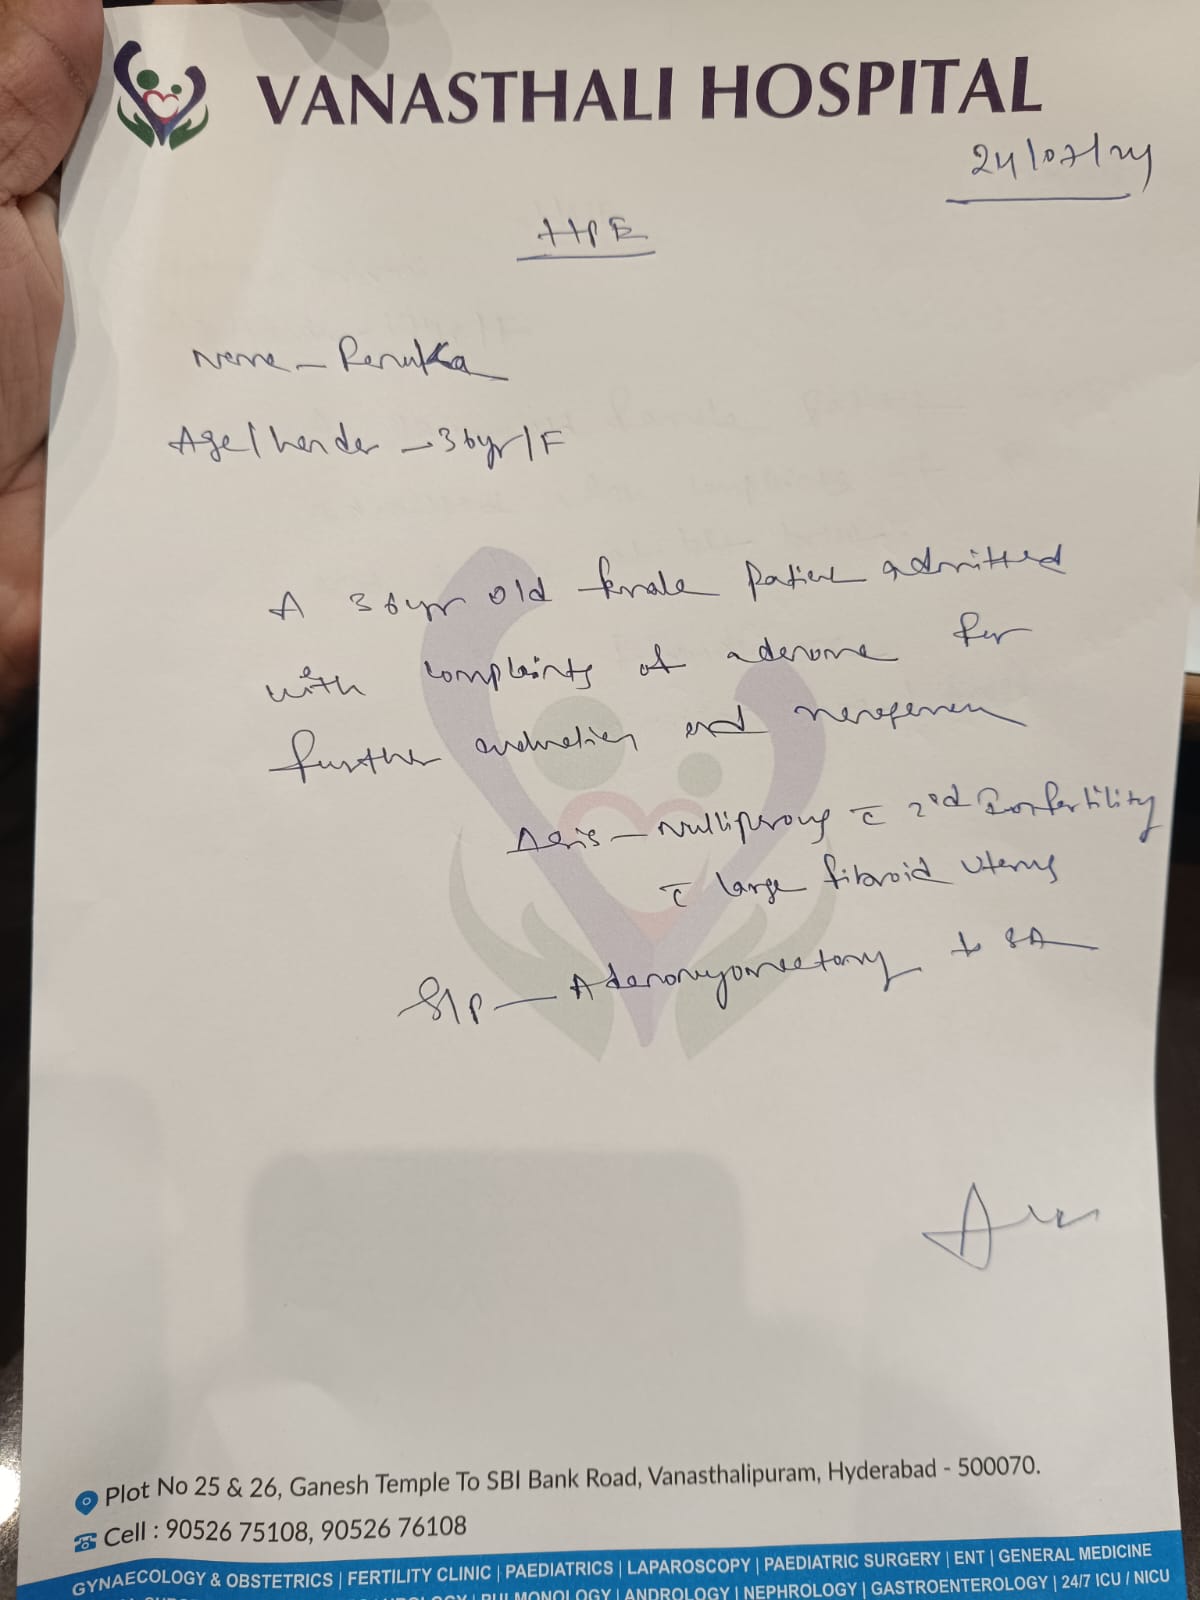 VANASTHALI HOSPITAL
24/07/24
HPE
Name - Renuka
Age/Gender - 36yr/F
A 36yr old female patient admitted
with complaints of adenoma for
further evaluation and
- Nulliparous c̄ 2nd Infertility
c̄ large fibroid uterus
S/p - Adenomyomectomy SA
Plot No 25 & 26, Ganesh Temple To SBI Bank Road, Vanasthalipuram, Hyderabad - 500070.
Cell : 90526 75108, 90526 76108
GYNAECOLOGY & OBSTETRICS | FERTILITY CLINIC | PAEDIATRICS | LAPAROSCOPY | PAEDIATRIC SURGERY | ENT | GENERAL MEDICINE
PULMONOLOGY | ANDROLOGY | NEPHROLOGY | GASTROENTEROLOGY | 24/7 ICU / NICU